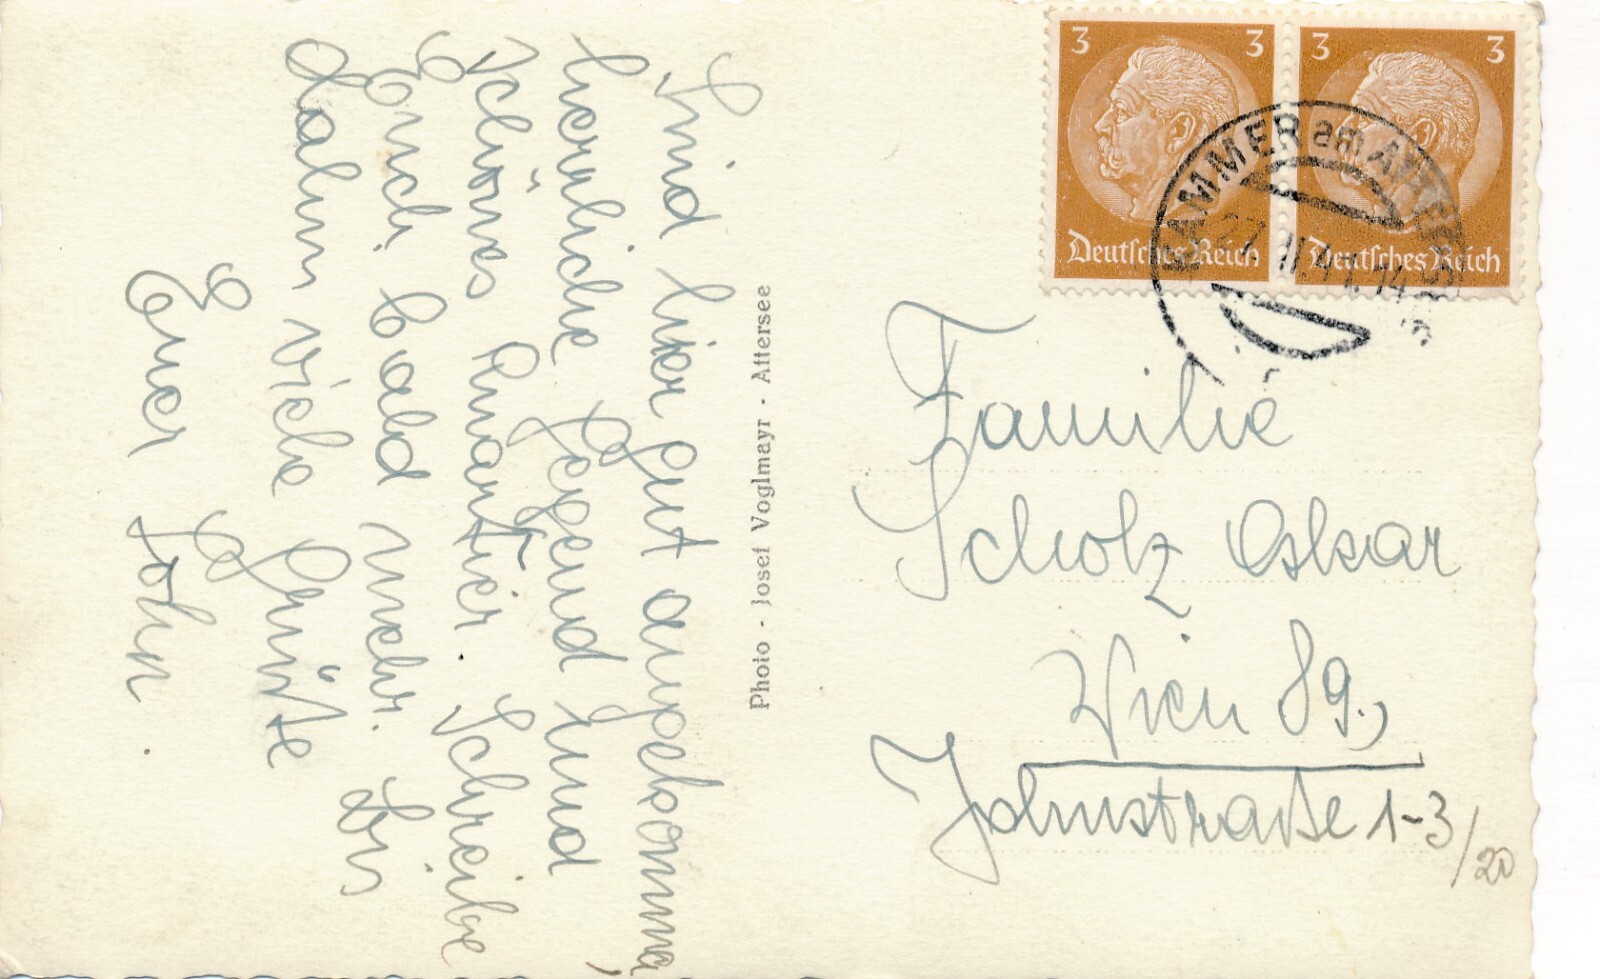 Sind hier gut angekommen,
herrliche Gegend und
schönes Quartier. Schreibe
Euch bald mehr. Bis
dahin viele Grüße
Euer John.
Photo - Josef Voglmayr - Attersee
3 3
Deutsches Reich
3 3
Deutsches Reich
KAMMER am ATTERSEE
Familie
Scholz Oskar
Wien 89.,
Johnstraße 1-3/20